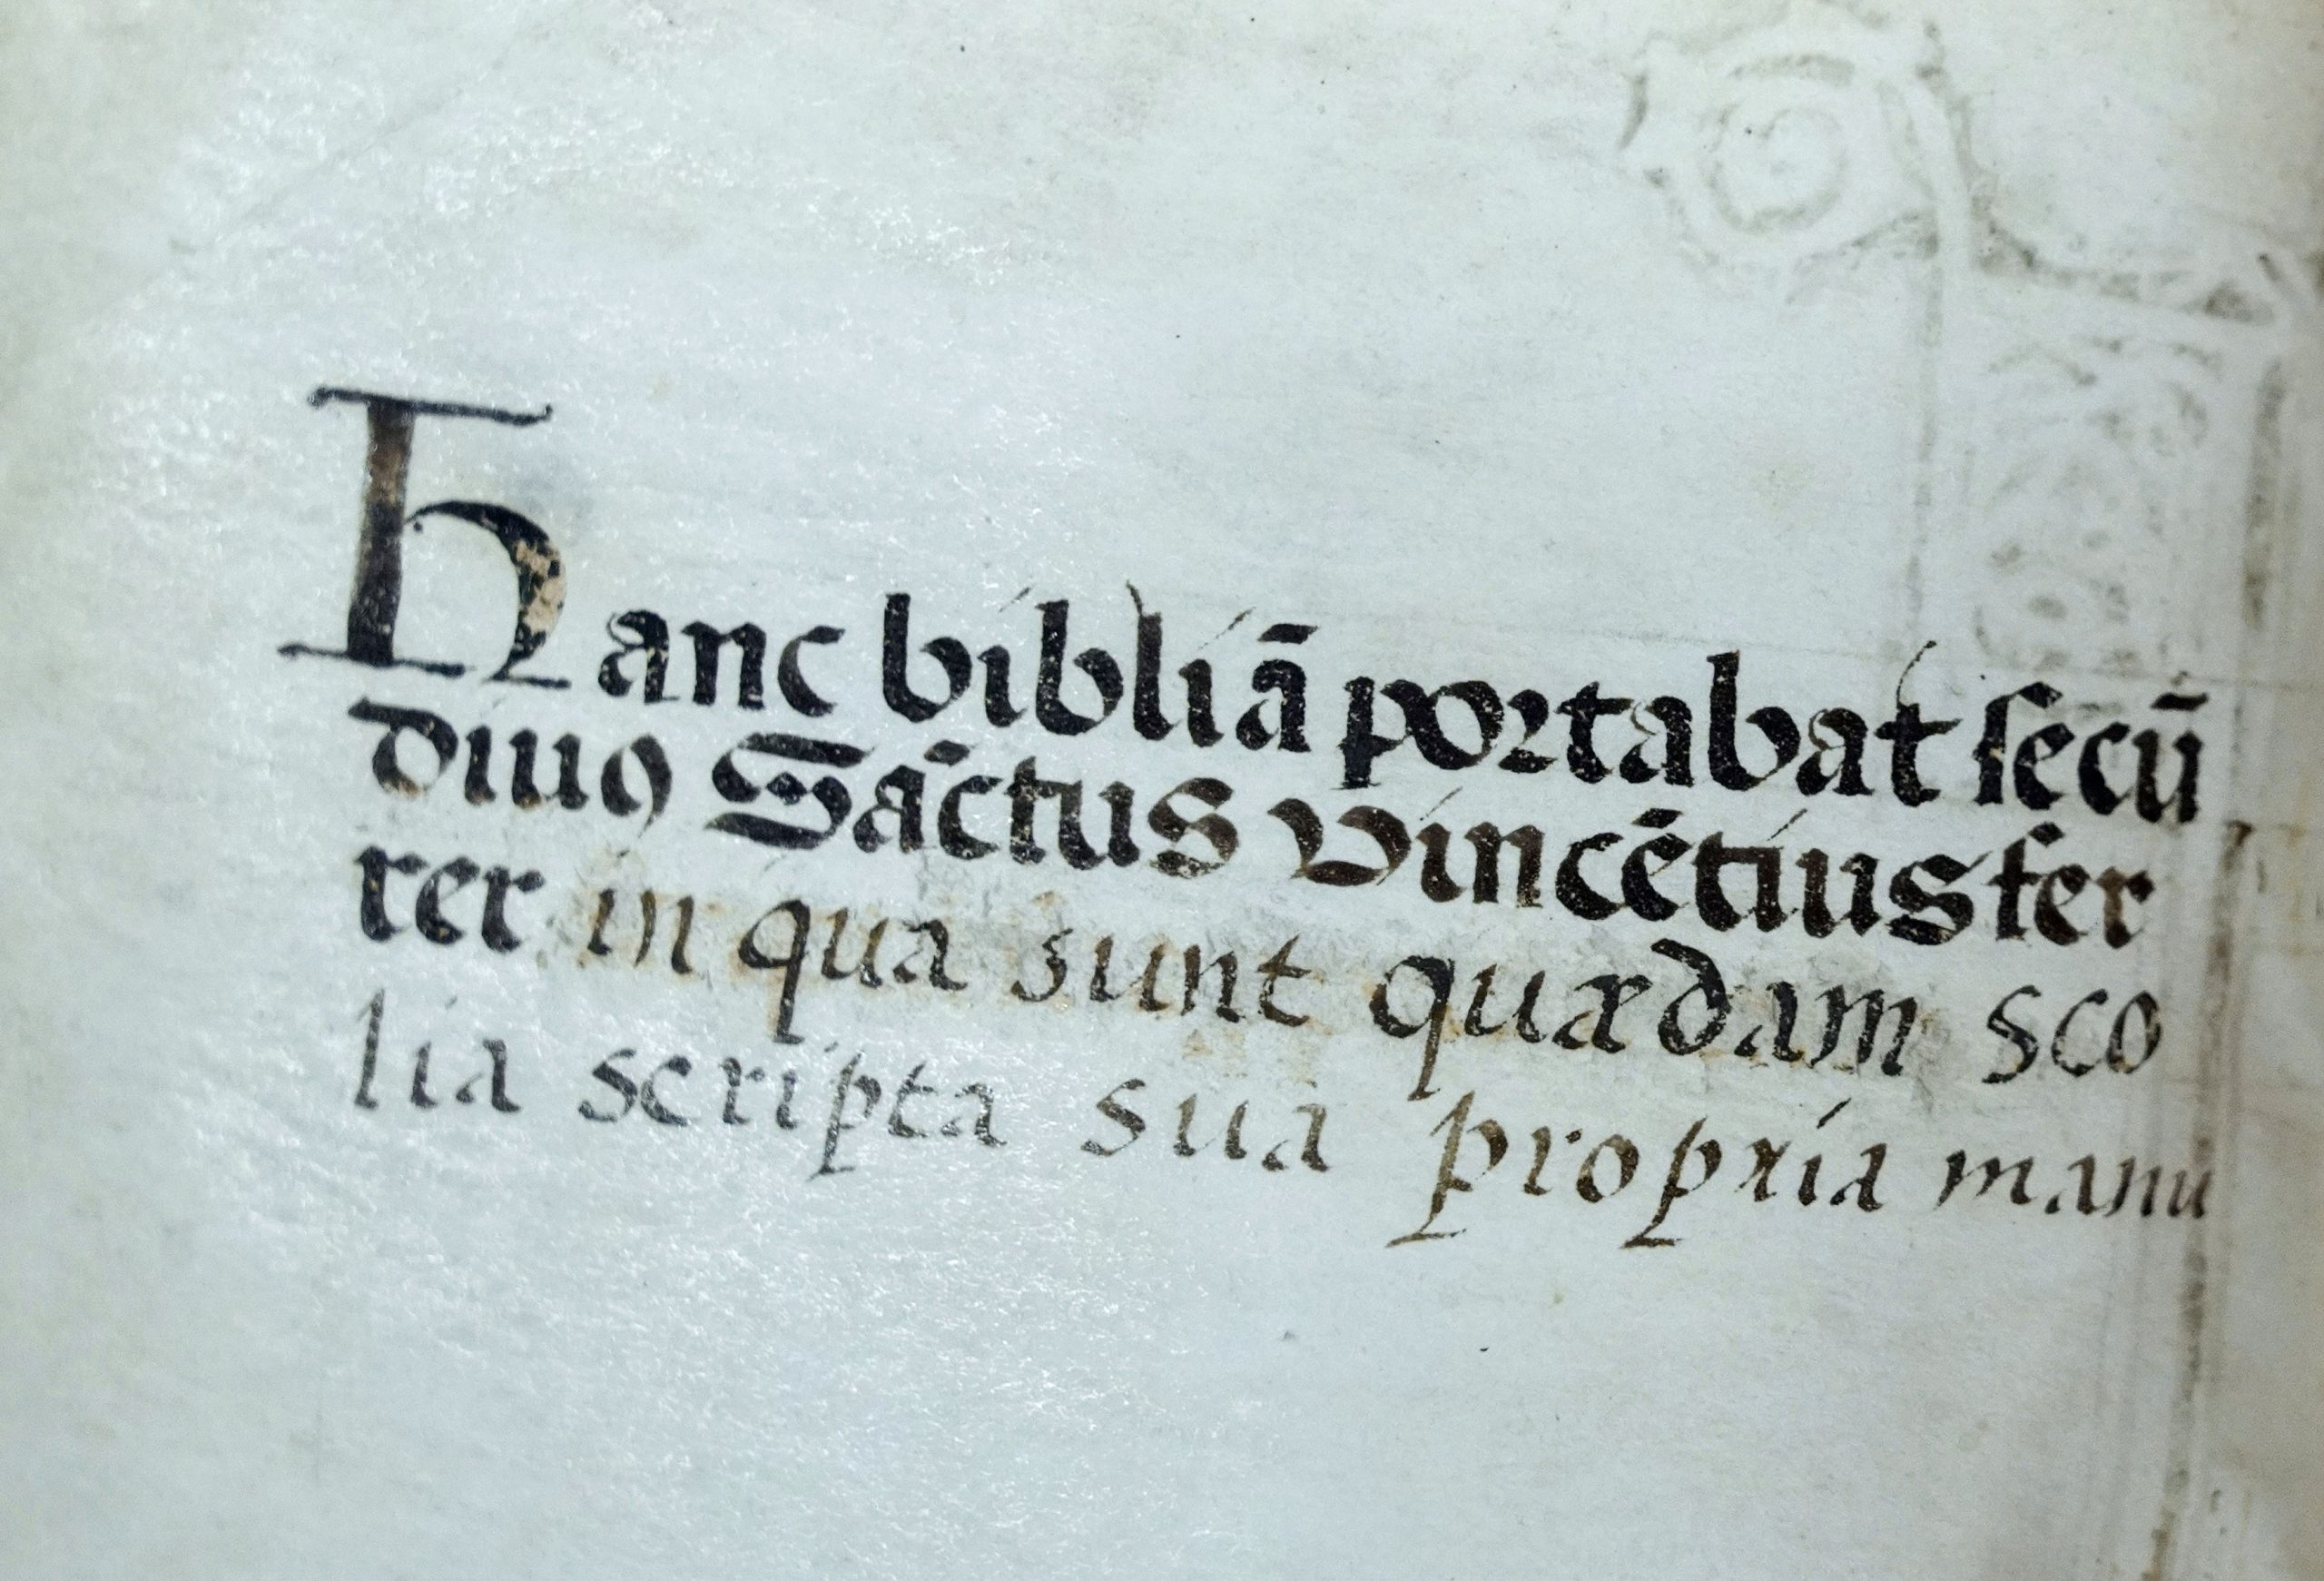 Hanc bibliā portabat ſecū
diuꝰ Sāctus Vincētius fer
rer in qua sunt quædam sco
lia scripta sua propria manu